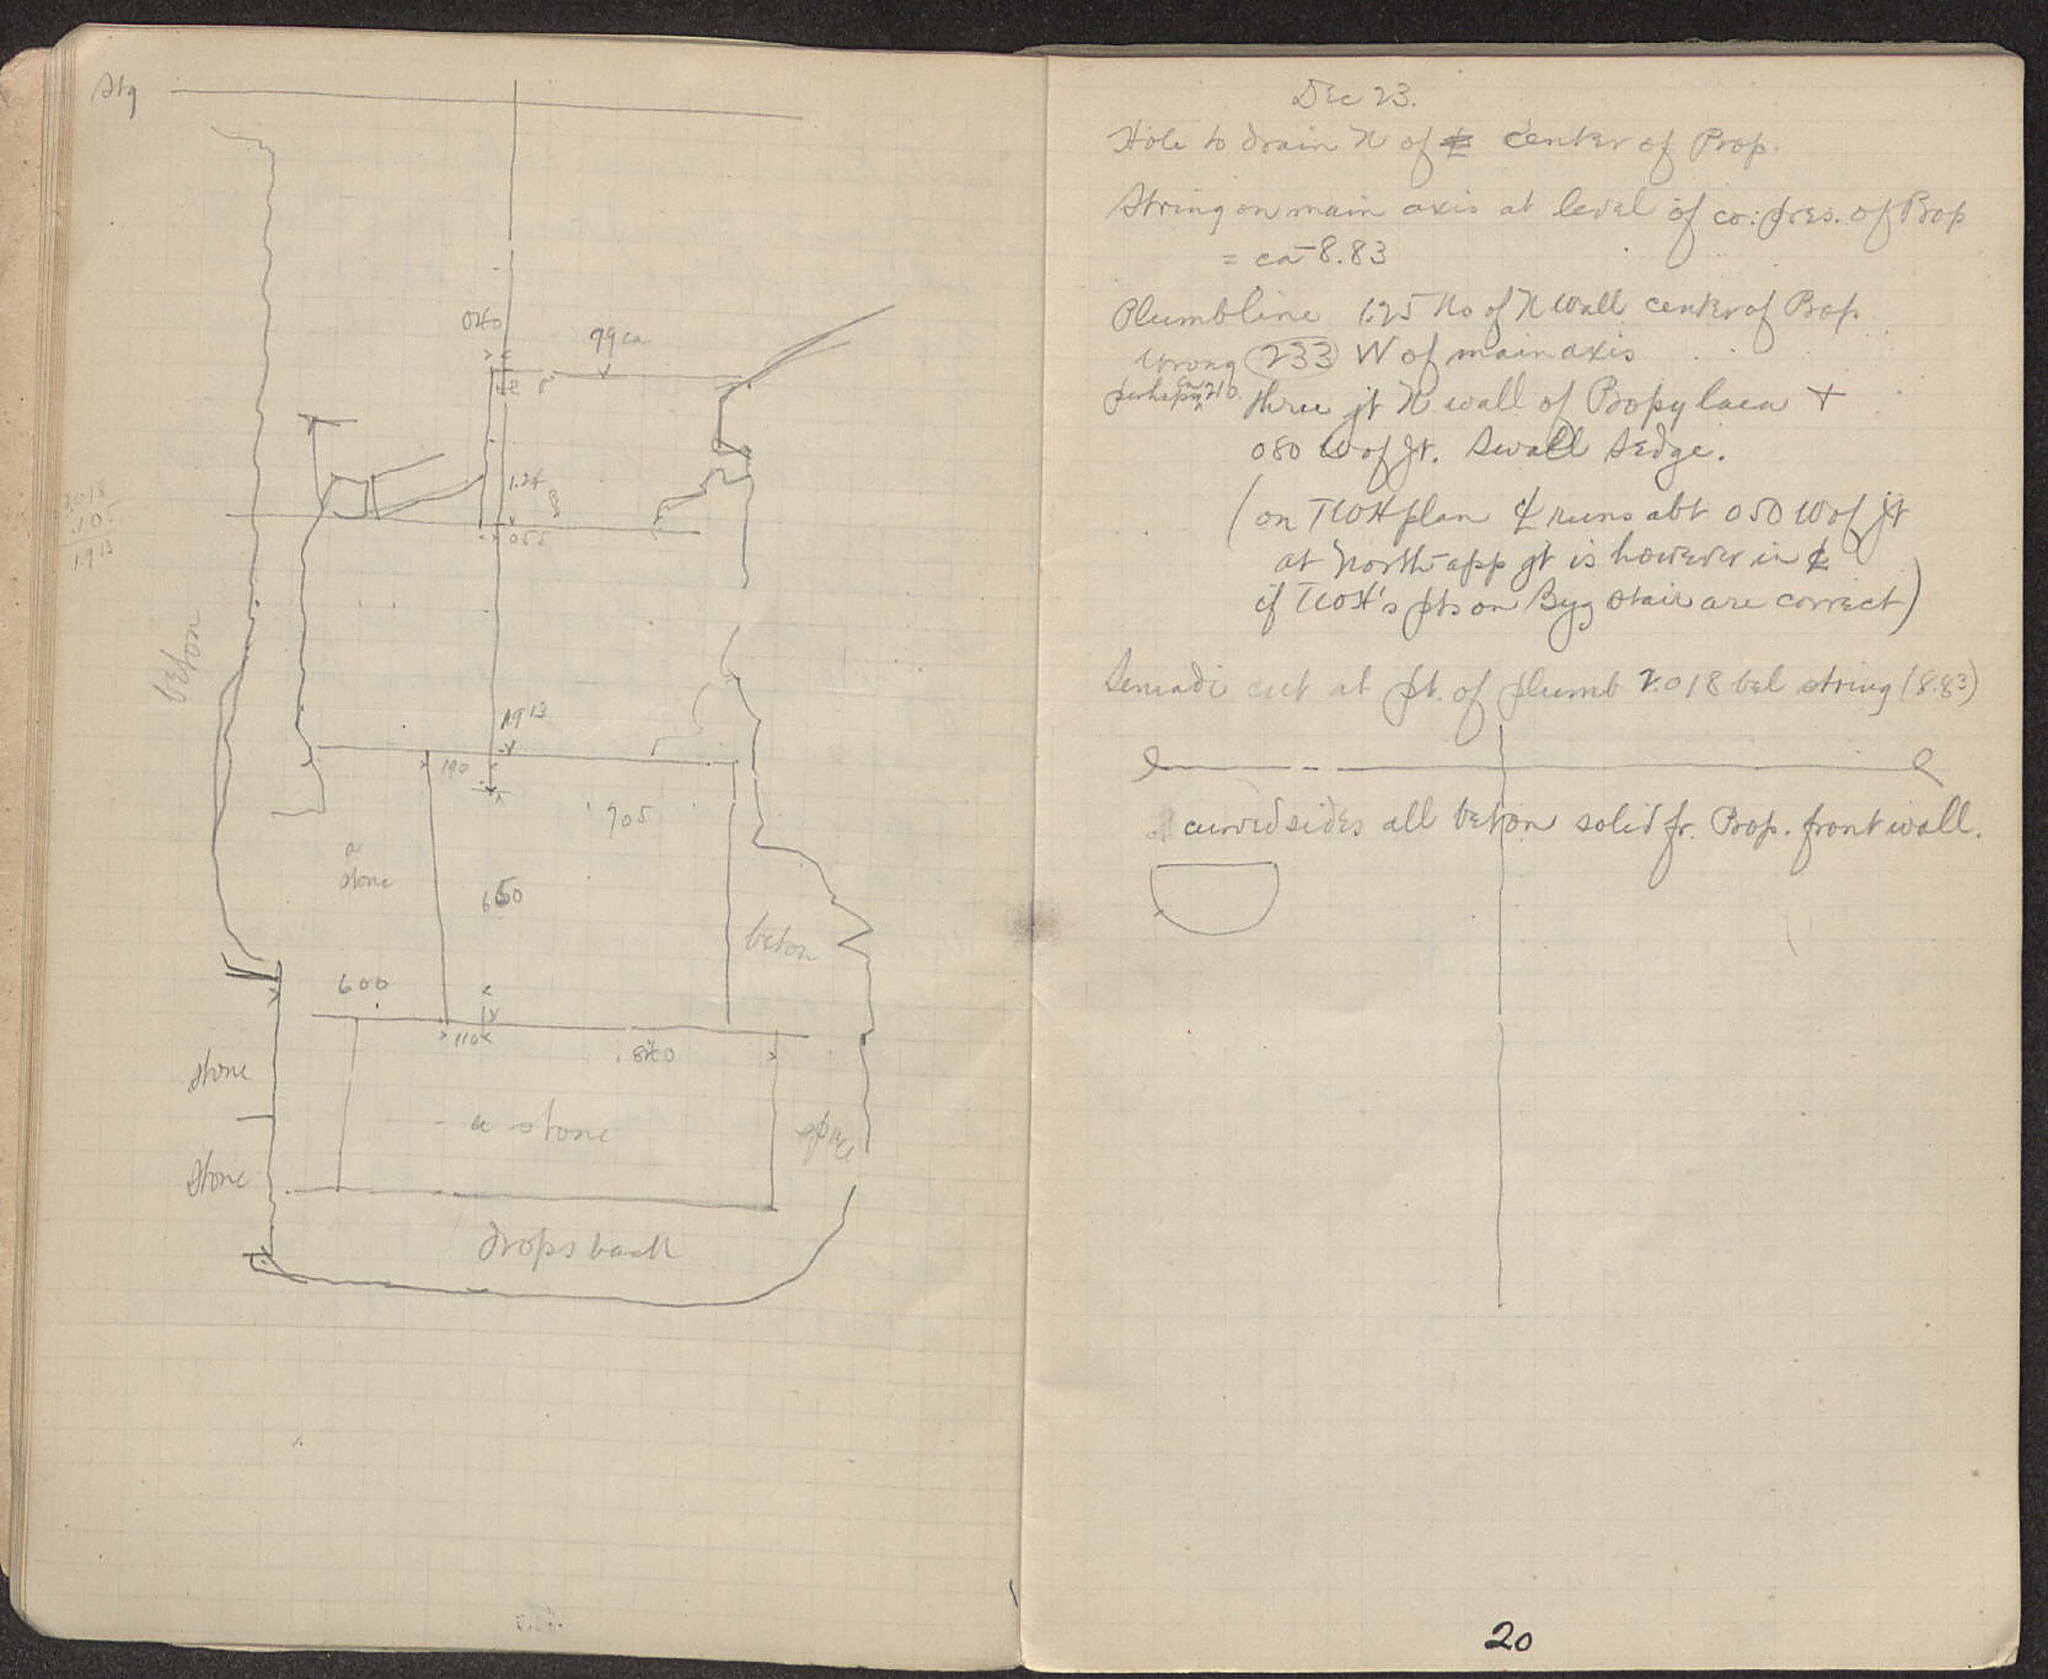 Stg
040
99 ca
1.24
055
2.018
.105
1.913
beton
1.913
190
705
a
stone
650
beton
600
110
.840
stone
a stone
space
stone
drops back
Dec 23.
Hole to drain N of ℄ center of Prop.
String on main axis at level of co: pres. of Prop
= ca 8.83
Plumbline 1.25 No of N wall center of Prop.
wrong 233 W of main axis
perhaps ca 210. thru jt N wall of Propylaea +
080 W of Jt. S wall S edge.
(on TWH plan ℄ runs abt 050 W of jt
at North app jt is however in ℄
if TWH's pts on Byz stair are correct)
cut at pt. of plumb 2.018 bel string (8.83)
curved sides all beton solid fr. Prop. front wall.
20